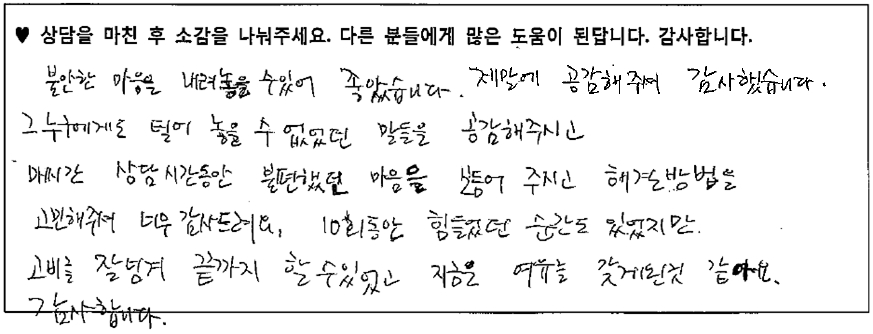 ♥ 상담을 마친 후 소감을 나눠주세요. 다른 분들에게 많은 도움이 된답니다. 감사합니다.
불안한 마음을 내려놓을 수있어 좋았습니다. 제말에 공감해주셔 감사했습니다.
그누구에게도 털어 놓을 수 없었던 말들을 공감해주시고
매시간 상담시간동안 불편했던 마음을 보듬어 주시고 해결방법을
고민해주셔 너무 감사드려요. 10회동안 힘들었던 순간도 있었지만.
고비를 잘넘겨 끝까지 할 수있었고 지금은 여유를 갖게된것 같아요.
감사합니다.